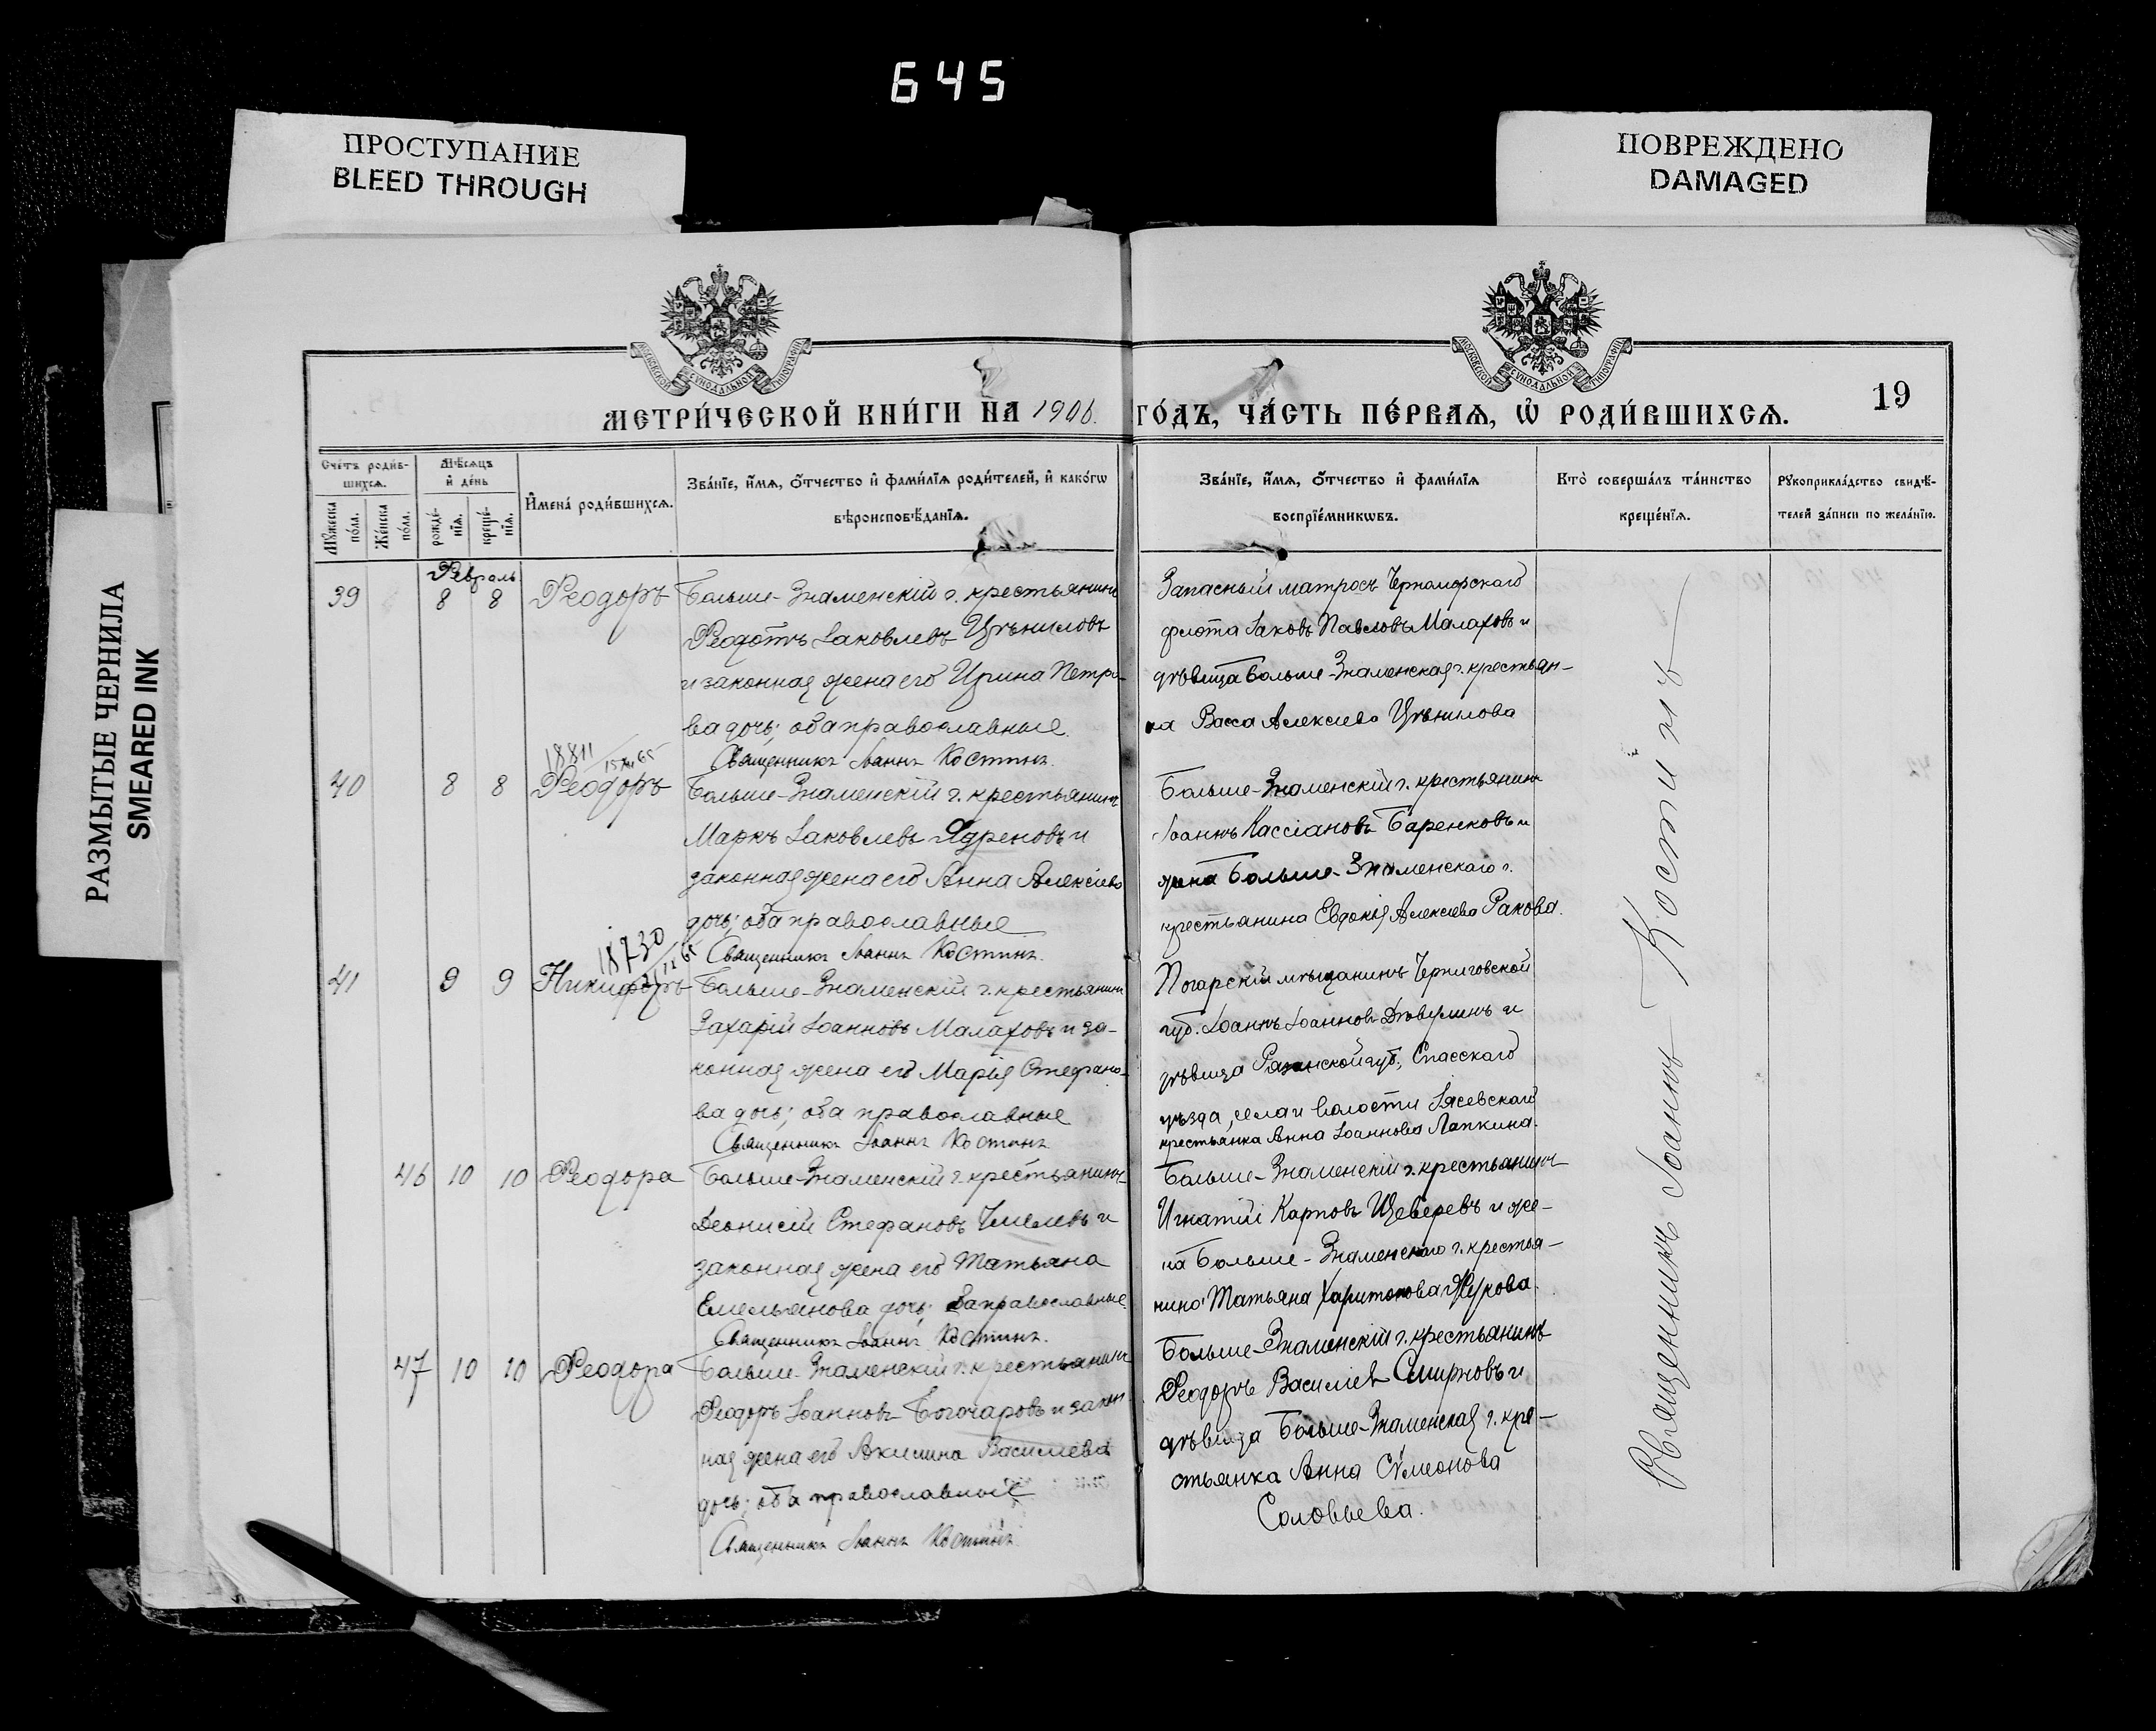 645
ПРОСТУПАНИЕ
BLEED THROUGH
ПОВРЕЖДЕНО
DAMAGED
РАЗМЫТЫЕ ЧЕРНИЛА
SMEARED INK
МОСКОВСКОЙ СѴНОДАЛЬНОЙ ТИПОГРАФІИ
МОСКОВСКОЙ СѴНОДАЛЬНОЙ ТИПОГРАФІИ
19
МЕТРИ́ЧЕСКОЙ КНИ́ГИ НА 1906. ГО́ДЪ, ЧА́СТЬ ПЕ́РВАЯ, Ѡ҆ РОДИ́ВШИХСѦ.
Сче́тъ роди́в-
шихсѧ.
Мꙋ́жеска по́ла.
Же́нска по́ла.
Мѣ́сѧцъ
и҆ де́нь
рожде́-
нїѧ.
креще́-
нїѧ.
И҆мена́ роди́вшихсѧ.
Зва́нїе, и҆́мѧ, ѻ҆́тчество и҆ фами́лїѧ роди́телей, и҆ како́гѡ
вѣроисповѣ́данїѧ.
Зва́нїе, и҆́мѧ, ѻ҆́тчество и҆ фами́лїѧ
воспрїе́мникѡвъ.
Кто̀ соверша́лъ та́инство
креще́нїѧ.
Рꙋкоприкла́дство свидѣ́-
телей за́писи по жела́нїю.
Февраль
39 8 8 Ѳеодоръ Больше-Знаменскій г. крестьянинъ
Ѳеодотъ Іаковлевъ Цѣниловъ
и законная жена его Ирина Петро-
ва дочь; оба православные.
Священникъ Іоаннъ Костинъ.
Запасный матросъ Черноморскаго
флота Іаковъ Павловъ Малаховъ и
дѣвица Больше-Знаменская г. крестьян-
ка Васса Алексіева Цѣнилова
18811
40 8 8 Ѳеодоръ Больше-Знаменскій г. крестьянинъ
Маркъ Іаковлевъ Ядреновъ и
законная жена его Анна Алексіева
дочь; оба православные
Священникъ Іоаннъ Костинъ.
Больше-Знаменскій г. крестьянинъ
Іоаннъ Кассіановъ Баренковъ и
жена Больше-Знаменскаго г.
крестьянина Евдокія Алексіева Ракова.
18730
41 9 9 Никифоръ Больше-Знаменскій г. крестьянинъ
Захарій Іоанновъ Малаховъ и за-
конная жена его Марія Стефано-
ва дочь; оба православные
Священникъ Іоаннъ Костинъ
Погарскій мѣщанинъ Черниговской
губ. Іоаннъ Іоанновъ и
дѣвица Рязанской губ, Спасскаго
уѣзда, села и волости
крестьянка Анна Іоаннова Лапкина.
46 10 10 Ѳеодора Больше-Знаменскій г. крестьянинъ
Діонисій Стефановъ Чмелевъ и
законная жена его Татьяна
Емельянова дочь; оба православные.
Священникъ Іоаннъ Костинъ.
Больше-Знаменскій г. крестьянинъ
Игнатій Карповъ Щеверевъ и же-
на Больше-Знаменскаго г. крестья-
нина Татьяна Харитонова Журова.
47 10 10 Ѳеодора Больше-Знаменскій г. крестьянинъ
Ѳеодоръ Іоанновъ Богочаровъ и закон-
ная жена его Акилина Василіева
дочь; оба православные
Священникъ Іоаннъ Костинъ.
Больше-Знаменскій г. крестьянинъ
Ѳеодоръ Василіевъ Смирновъ и
дѣвица Больше-Знаменская г. кре-
стьянка Анна Сѵмеонова
Соловьева.
Священникъ Іоаннъ Костинъ